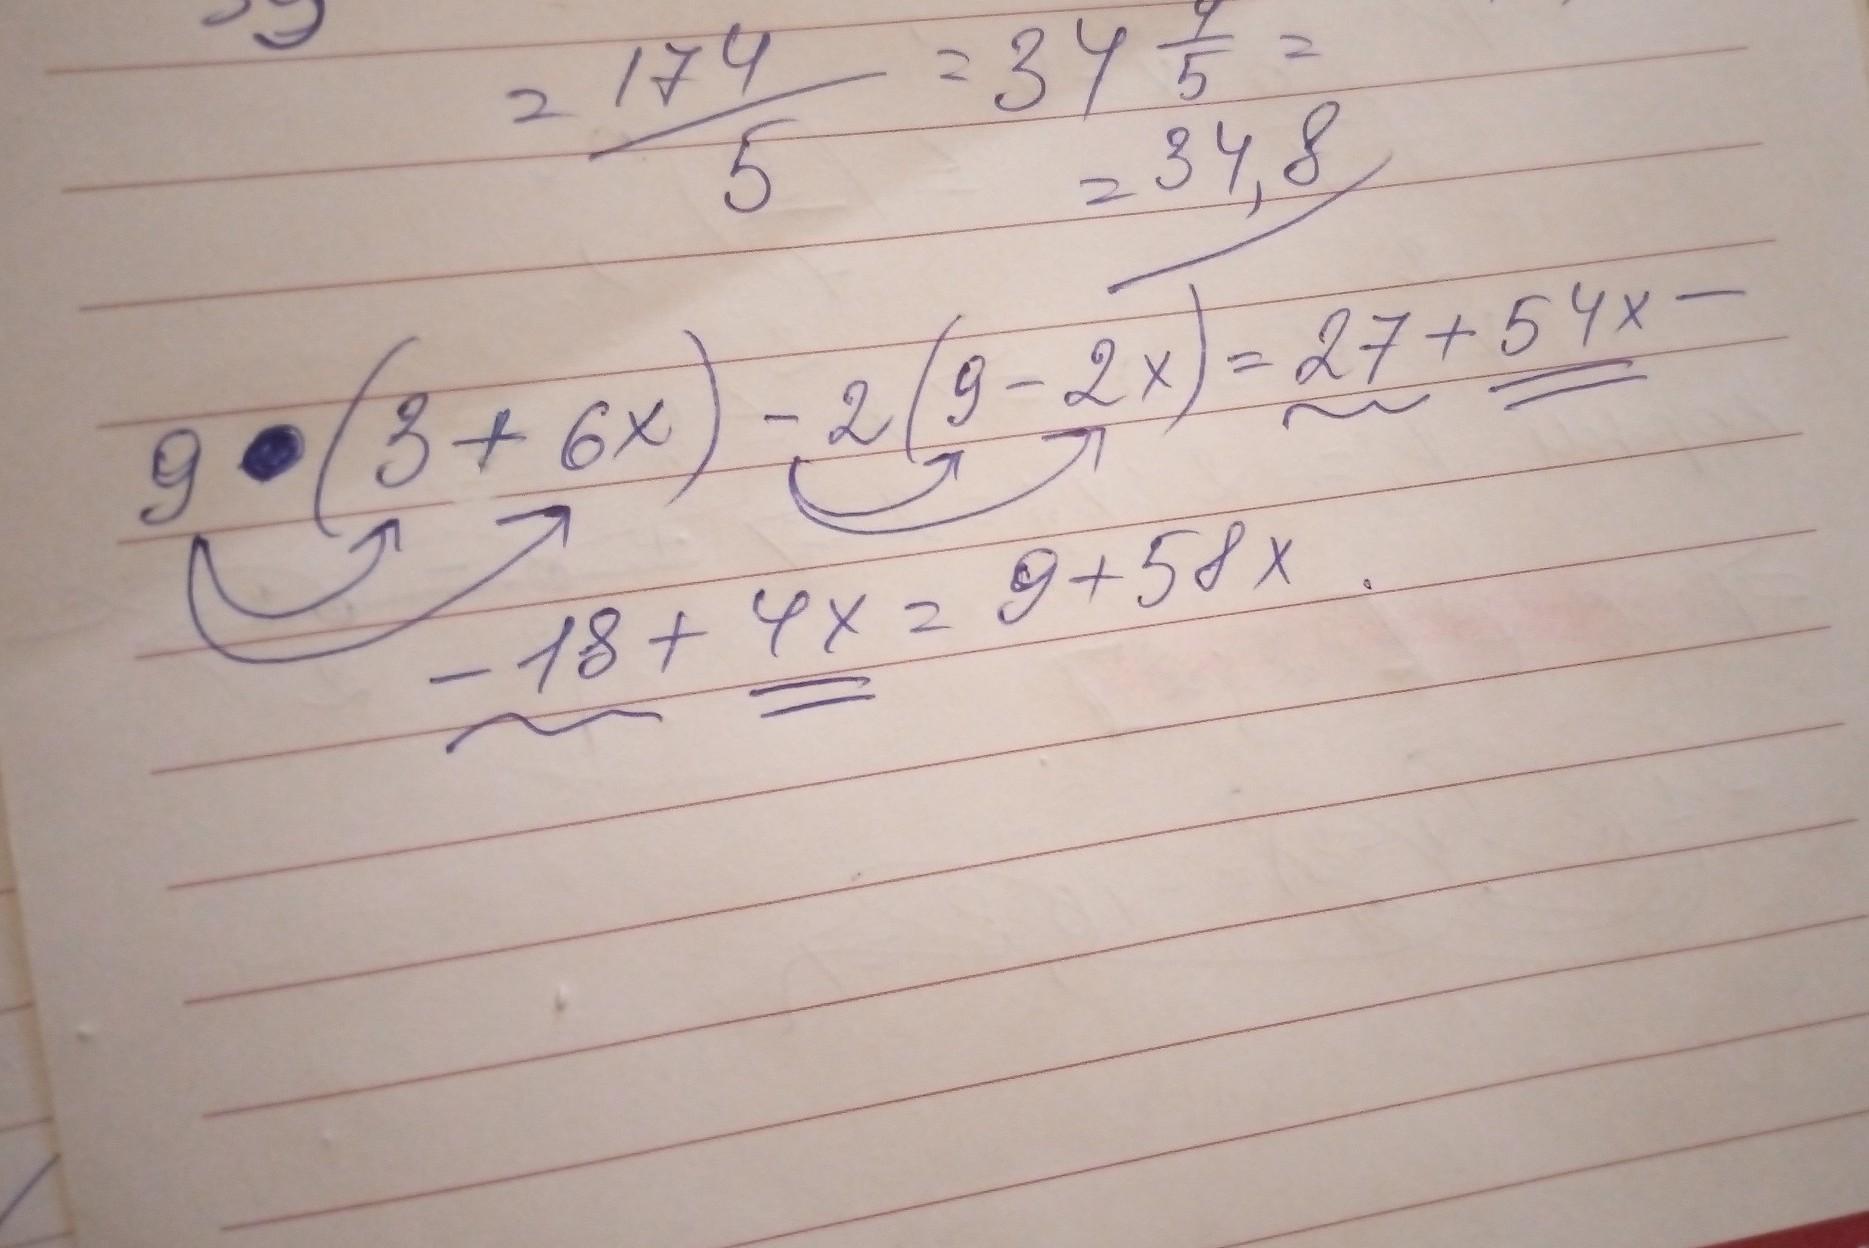 = 174/5 = 34 4/5 =
= 34,8
9 • (3 + 6x) - 2(9 - 2x) = 27 + 54x -
- 18 + 4x = 9 + 58x .